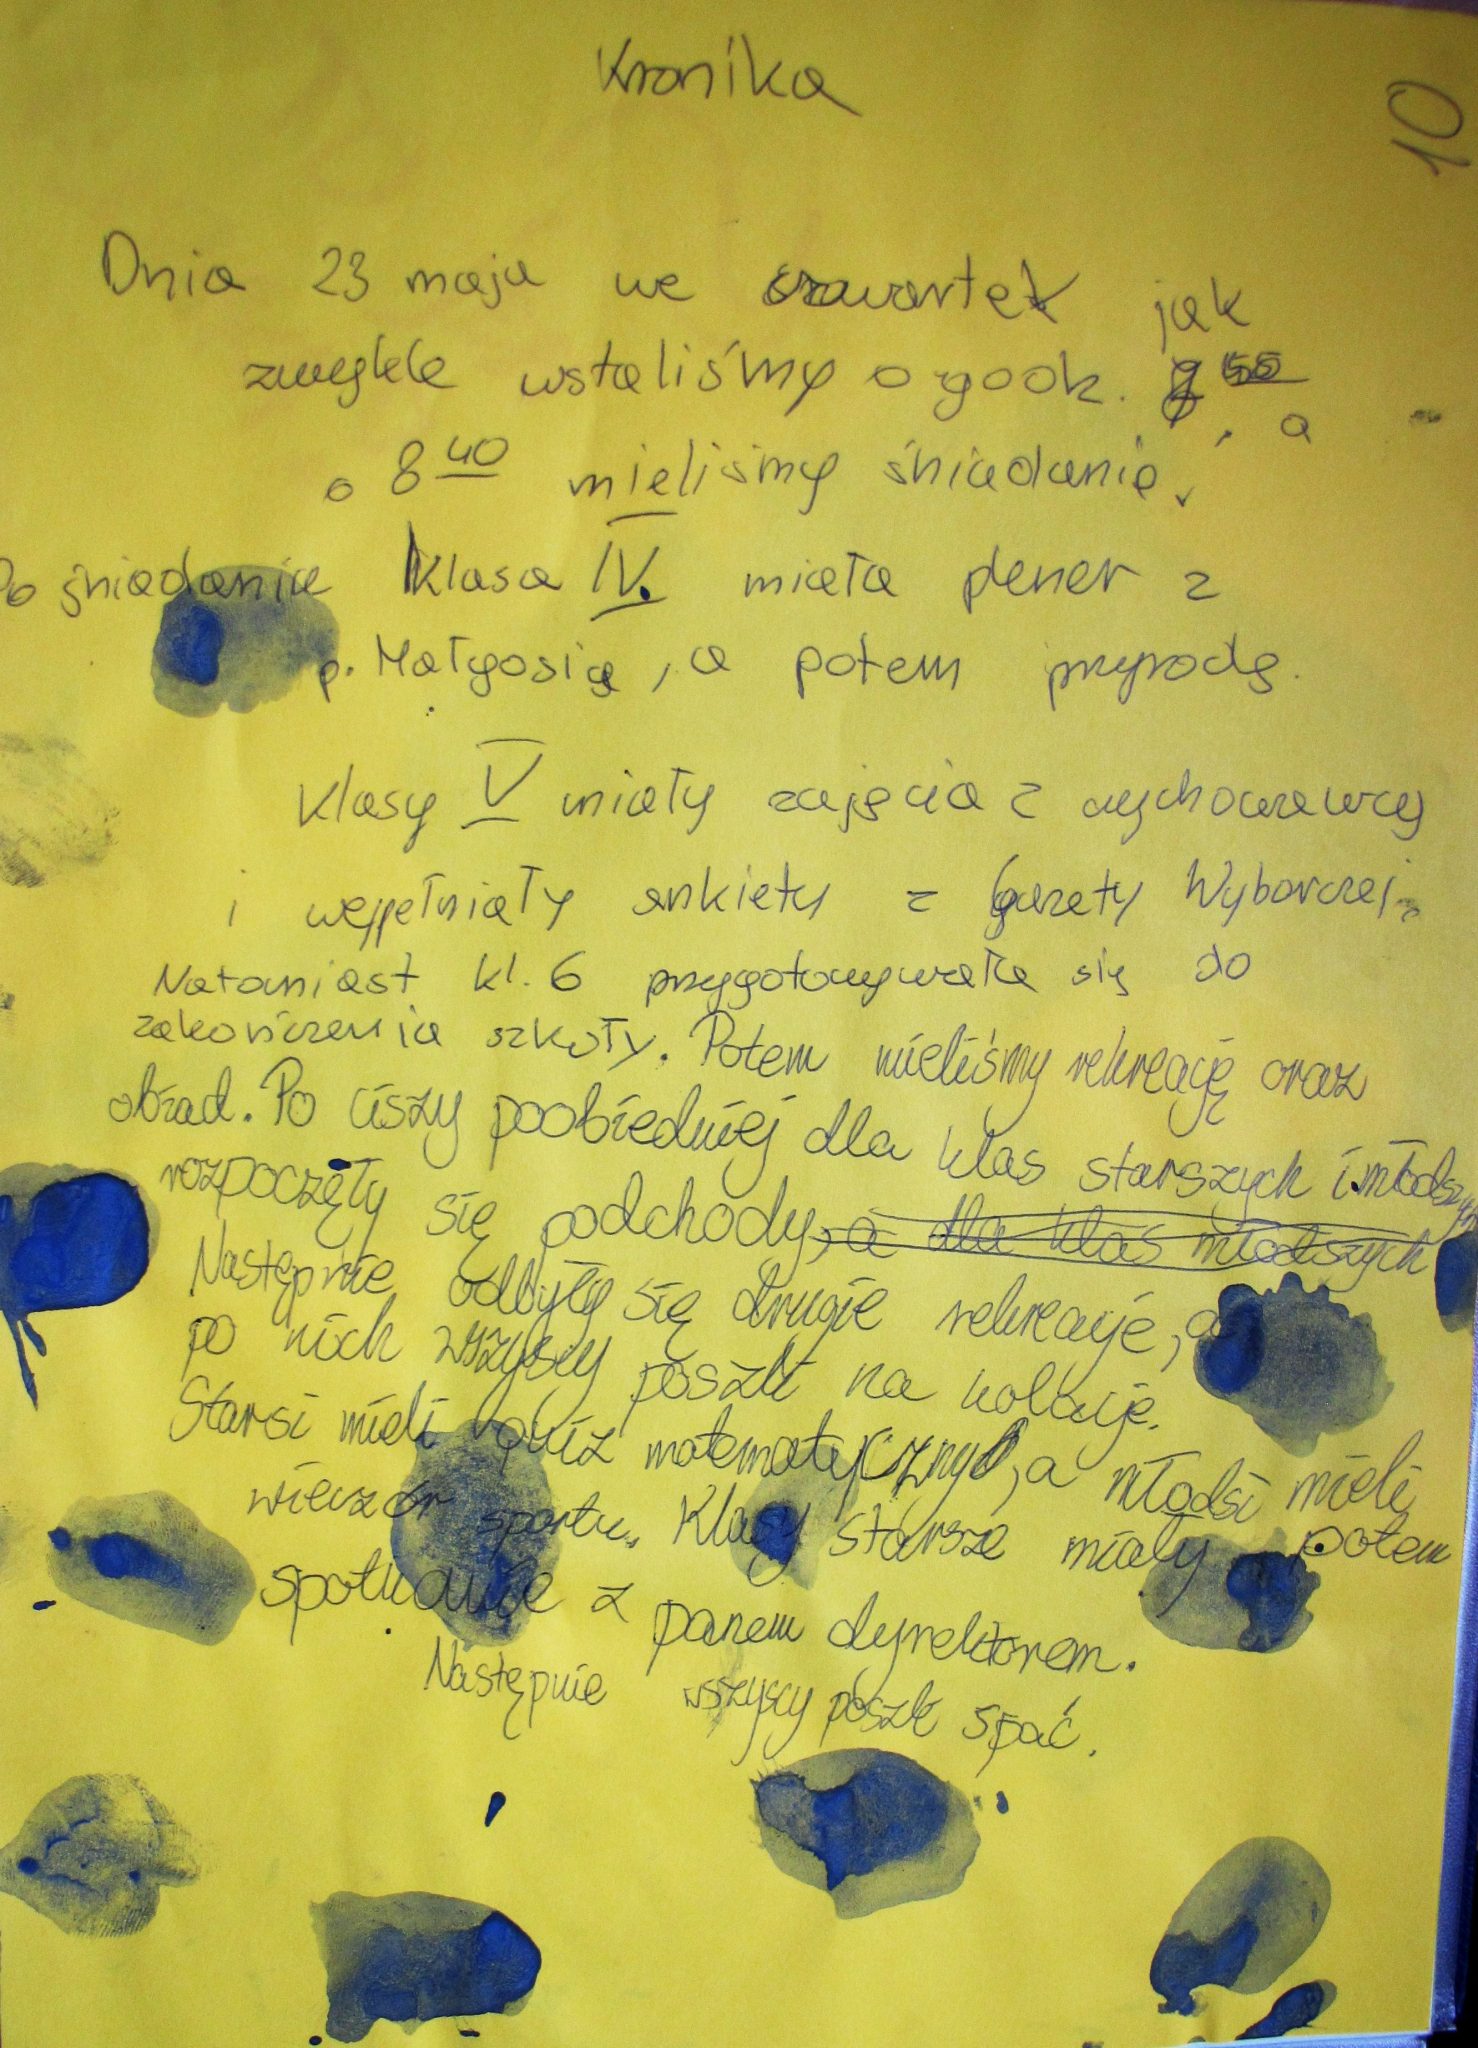 Kronika
10
Dnia 23 maja we czwartek jak
zwykle wstaliśmy o godz. 55, a
o 8 40 mieliśmy śniadanie.
Po śniadanie Klasa IV. miała plener z
p. Małgosią, a potem przyrodę.
Klasy V miały zajęcia z wychowawcą
i wypełniały ankiety z Gazety Wyborczej.
Natomiast kl. 6 przygotowywała się do
zakończenia szkoły. Potem mieliśmy rekreację oraz
obiad. Po ciszy poobiedniej dla klas starszych i młodszych
rozpoczęły się podchody, a dla klas młodszych
Następnie odbyły się drugie rekreacje, a
po nich wszyscy poszli na kolację.
Starsi mieli quiz matematyczny, a młodsi mieli
wieczór sportu. Klasy starsze miały potem
spotkanie z panem dyrektorem.
Następnie wszyscy poszli spać.